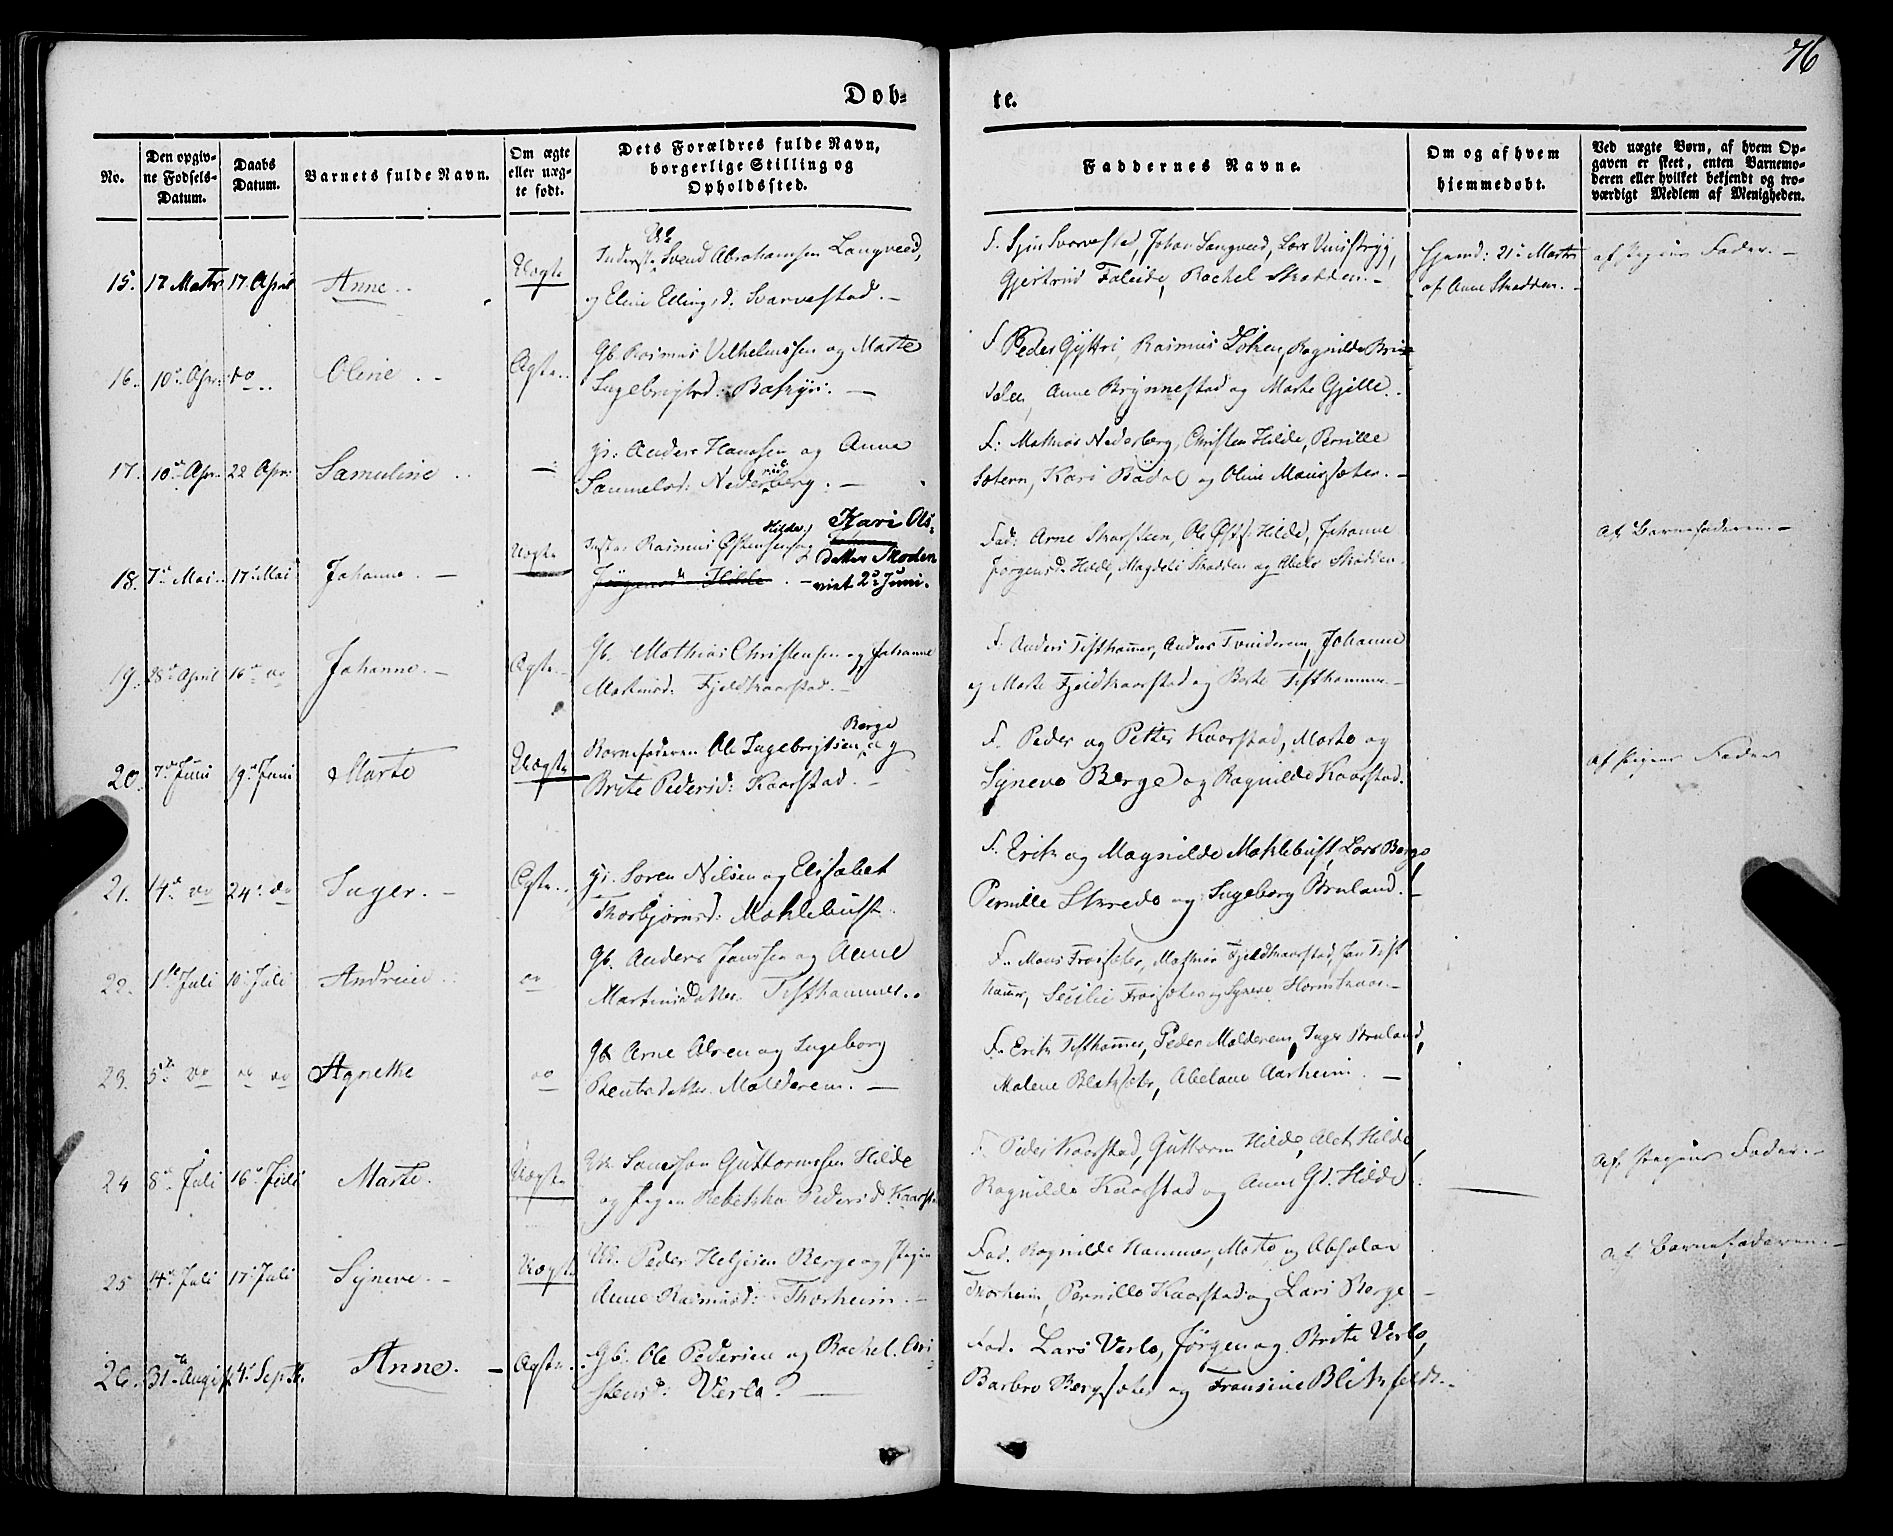 76
Dob-
te.
No.
Den opgiv-
ne Fødsels-
Datum.
Daabs
Datum.
Barnets fulde Navn.
Om ægte
eller uæg-
te født.
Dets Forældres fulde Navn,
borgerlige Stilling og
Opholdssted.
Faddernes Navne.
Om og af hvem
hjemmedøbt.
Ved uægte Børn, af hvem Op-
gaven er skeet, enten Barnemo-
deren eller hvilket bekjendt og tro-
værdigt Medlem af Menigheden.
15. 17 Marts 17 April Anne Uægte
Svend Abrahamsen Langveed,
og Eline Ellings d: Svarvestad. —
Svarvestad, Johan Langveed, Lars
Gjertrud Faleide, Rachel Skodden. —
Hjemd: 21 Marts
af Anne Skodden. —
af Pigens Fader. —
16. 10 Apr: do Oline Ægte
Gb Rasmus Vilhelmsen og Marte
Ingebrigtsd:
F Peder Gyttri, Rasmus Loken, Ragnilde Brix-
dalen Anne Brynnestad og Marte Gjelle.
17. 10 Apr. 22 Apr: Samuline —
Anders Hanssen og Anne
Samuelsd: Nederberg. —
F: Mathias Nederberg, Christen Hilde, Pernille
Sætern, Kari Bødal og Oline
18. 7 Mai 17 Mai Johanne. — Uægte
Rasmus Østensen Hilde og Kari Ols-
datter Skoden
Jørgensd: Hilde viet 2 Juni.
Fad: Arne Skarsteen, Ole Østs: Hilde, Johanne
Jørgensd: Hilde, Magdeli Skodden og Abels Skodden.
Af Barnefaderen. —
19. 28 April 16 do Johanne. — Ægte
Gb. Mathias Christensen og Johanne
Martinsd: Fjeldkaarstad. —
F. Anders Tisthammer, Anders Tvinderem, Johanne
og Marte Fjeldkaarstad og Berte Tisthammer. —
20. 7 Juni 19 Juni Marte Uægte
Barnefaderen Ole Ingebrigtsen Berge og
Brite Pedersd: Kaarstad. —
F. Peder og Petter Kaarstad, Marte og
Syneve Berge og Ragnilde Kaarstad.
Af Pigens Fader
21. 14 do 24 do Inger. — Ægte
Søren Nilsen og Elisabet
Thorbjørnsd: Moklebust.
F. Erik og Magnilde Moklebust, Lars Berge
Pernille Skrede og Ingeborg Bruland.
22. 1 Juli 10 Juli Andrine do
Gb. Anders Janssen og Anne
Martinsdatter Tisthammer.
F. Mons Froisæter, Mathias Fjeldkaarstad, Jan Tist-
hamer, Secilie Froisæter og Syneve
23. 5 do do do Agnethe do
Gb Arne Olsen og Ingeborg
Bentsdatter Molderem. —
F. Erik Tisthamer, Peder Molderem, Inger Bruland,
Malene Blaksæter, Abelone Aarheim. —
24 8 Juli 16 Juli Marte. Uægte
Samson Guttormsen Hilde
og Pigen Rebekka Pedersd: Kaarstad
F. Peder Kaarstad, Guttorm Hilde, Alet Hilde
Ragnilde Kaarstad og Anne G d. Hilde.
Af Pigens Fader. —
25 14 Juli 17 Juli Syneve. — Uægte
Peder Helgesen Berge og Pigen
Anne Rasmusd: Thorheim. —
Fad. Ragnilde Hammer, Marte og Absalon
Thorheim, Pernille Kaarstad og Lars Berge —
af Barnefaderen. —
26. 31 Augs 4 Septbr. Anne. — Ægte
Gb. Ole Pedersen og Rachel Cri-
stensd: Verlo. —
Fad. Lars Verlo, Jørgen og Brite Verlo,
Barbro Bergsæter og Fransine Blikfeldt. —